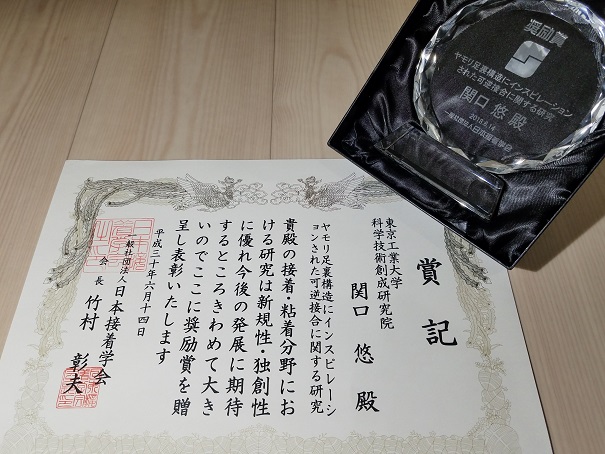 奨励賞
ヤモリ足裏構造にインスピレーション
された可逆接合に関する研究
関口 悠 殿
2018.6.14
一般社団法人日本接着学会
賞記
東京工業大学
科学技術創成研究院
関口 悠 殿
ヤモリ足裏構造にインスピレーシ
ョンされた可逆接合に関する研究
貴殿の接着・粘着分野にお
ける研究は新規性・独創性
に優れ今後の発展に期待
するところきわめて大き
いのでここに奨励賞を贈
呈し表彰いたします
平成三十年六月十四日
一般社団法人日本接着学会
会長 竹村 彰夫